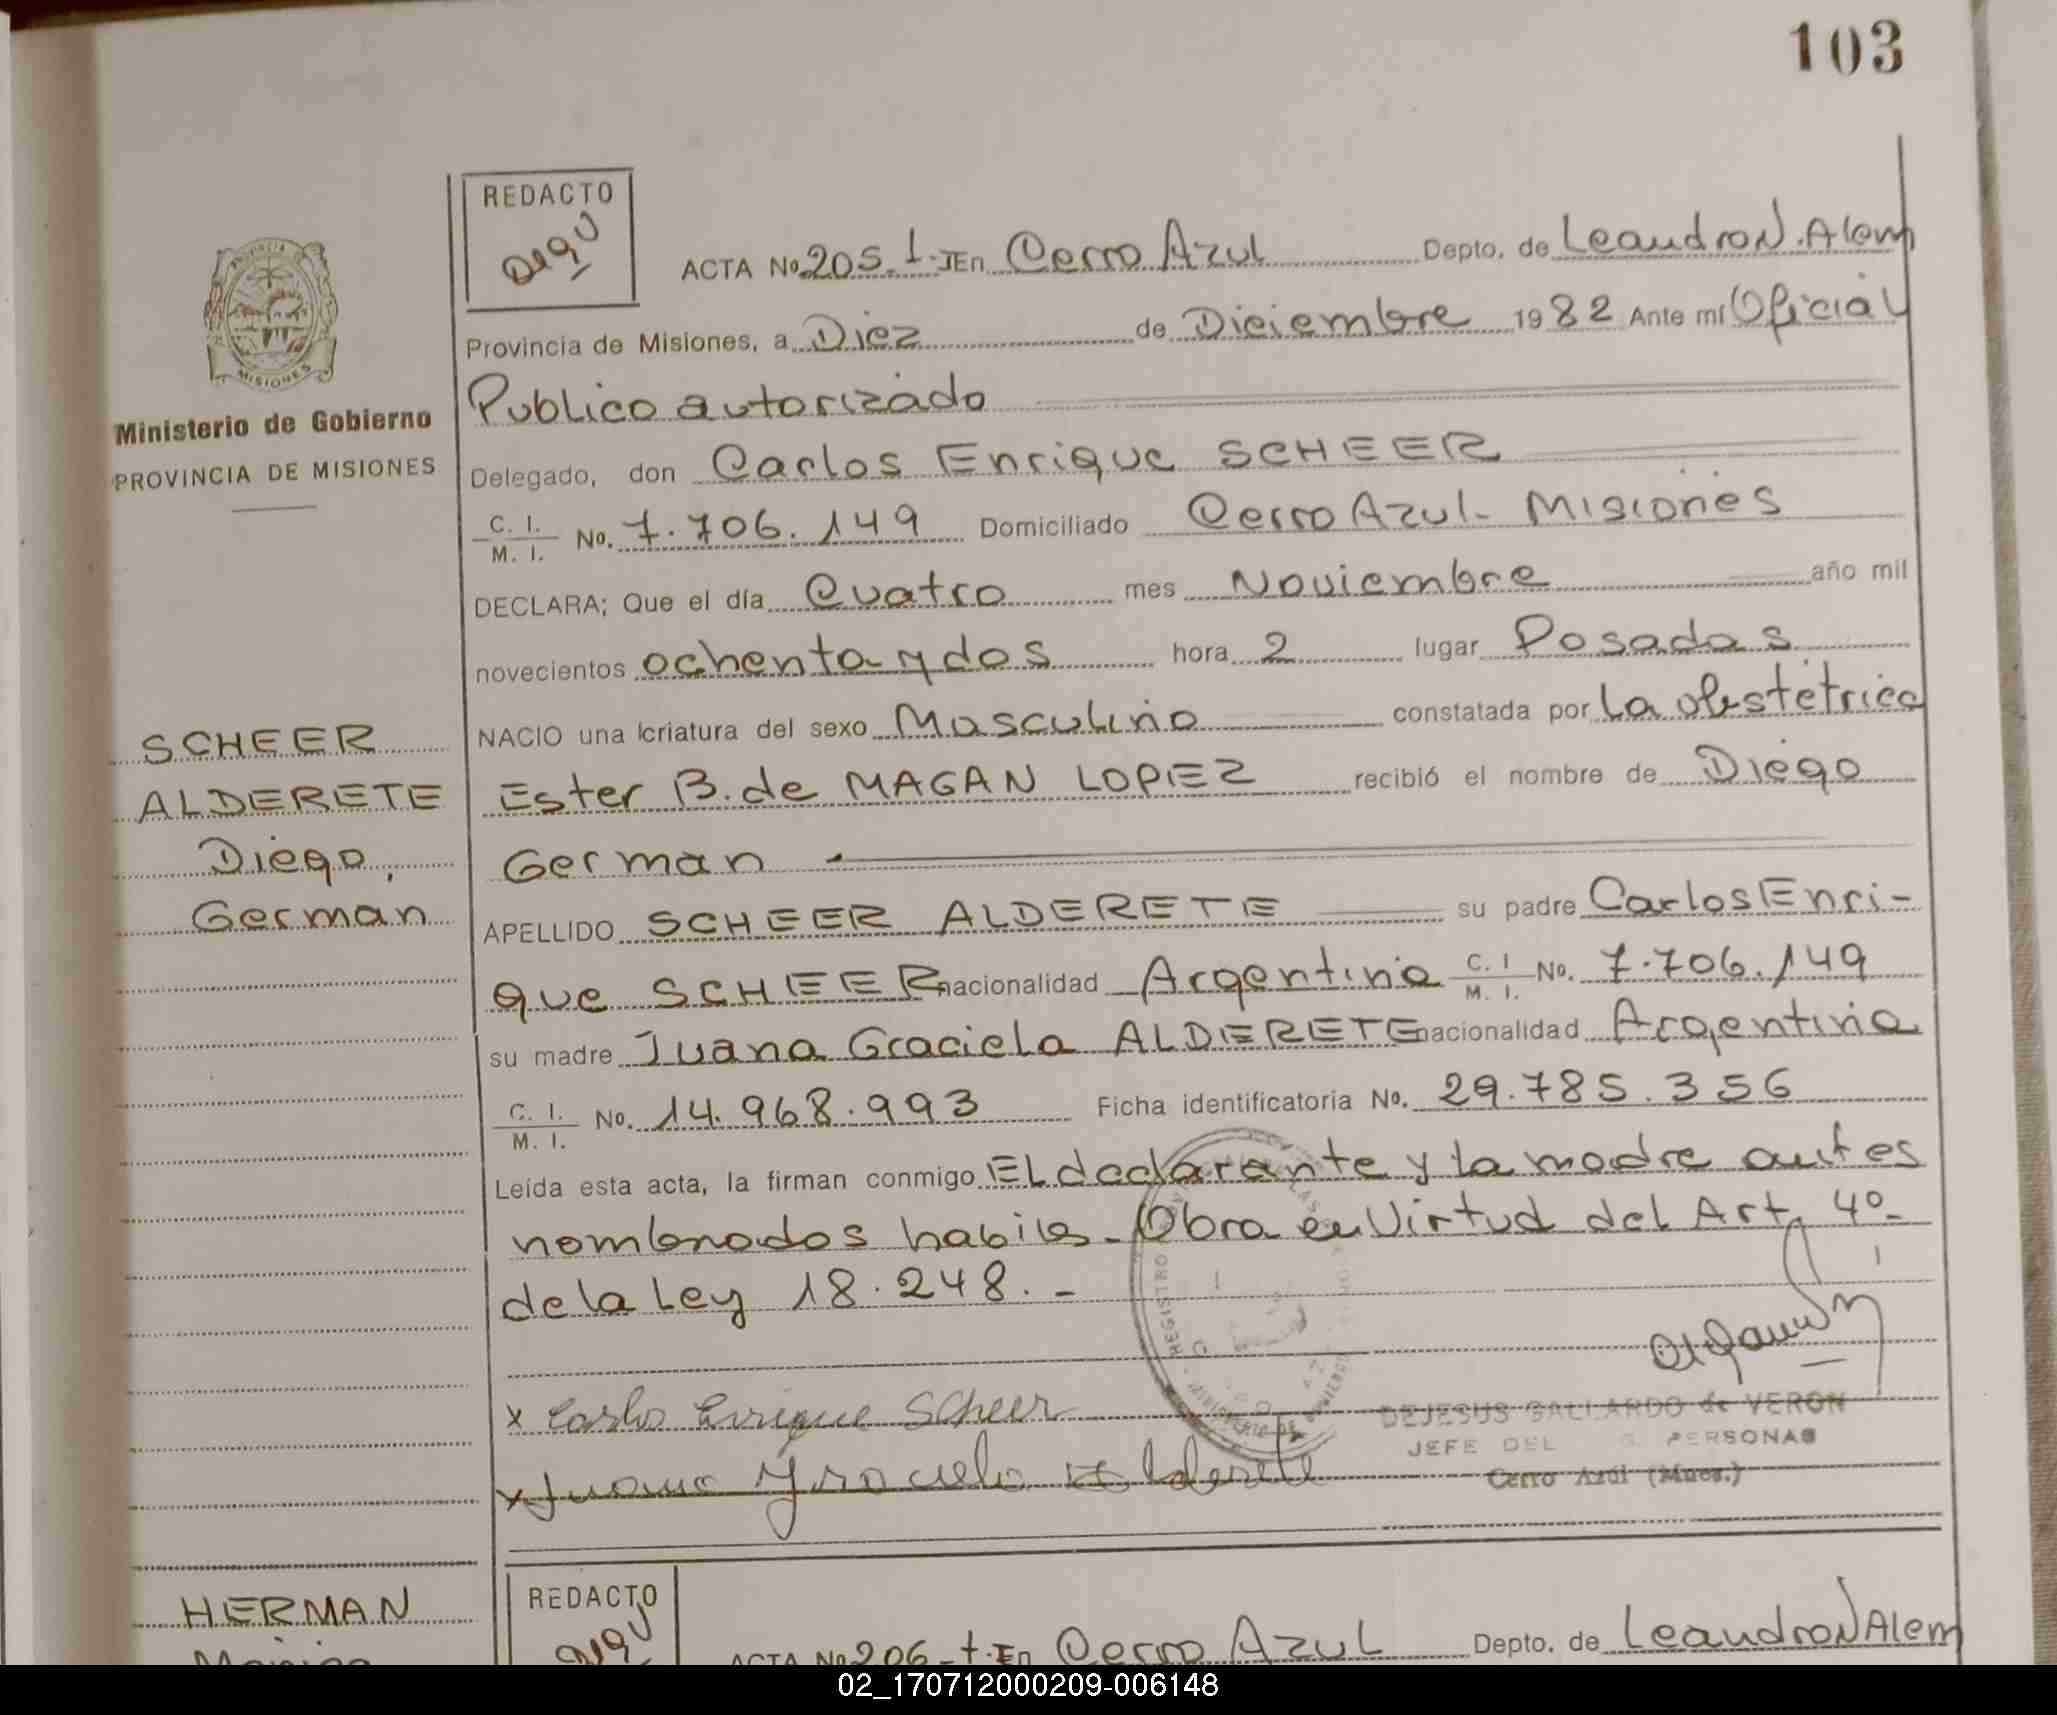 103
REDACTO
ACTA No. 205. t. I En Cerro Azul Depto. de Leandro N. Alem
PROVINCIA
MISIONES
Provincia de Misiones, a Diez de Diciembre 1982 Ante mí Oficial
Publico autorizado
Ministerio de Gobierno
PROVINCIA DE MISIONES
Delegado, don Carlos Enrique SCHEER
C. I.
M. I. No. 7.706.149 Domiciliado Cerro Azul - Misiones
DECLARA; Que el día Cuatro mes Noviembre año mil
novecientos ochenta y dos hora 2 lugar Posadas
NACIO una criatura del sexo Masculino constatada por la obstétrica
Ester B. de MAGAN LOPEZ recibió el nombre de Diego
German
APELLIDO SCHEER ALDERETE su padre Carlos Enri-
que SCHEER nacionalidad Argentina C. I. M. I. No. 7.706.149
su madre Juana Graciela ALDERETE nacionalidad Argentina
C. I.
M. I. No. 14.968.993 Ficha identificatoria No. 29.785.356
Leída esta acta, la firman conmigo El declarante y la madre antes
nombrados habiles - Obra en Virtud del Art. 4º-
de la Ley 18.248. -
SCHEER
ALDERETE
Diego,
German
x Carlos Enrique Scheer
x Juana Graciela Alderete
DEJESUS GALLARDO de VERON
JEFE DEL PERSONAS
Cerro Azul (Mnes.)
HERMAN
REDACTO
ACTA No 206 - t. I En Cerro Azul Depto. de Leandro N Alem
02_170712000209-006148